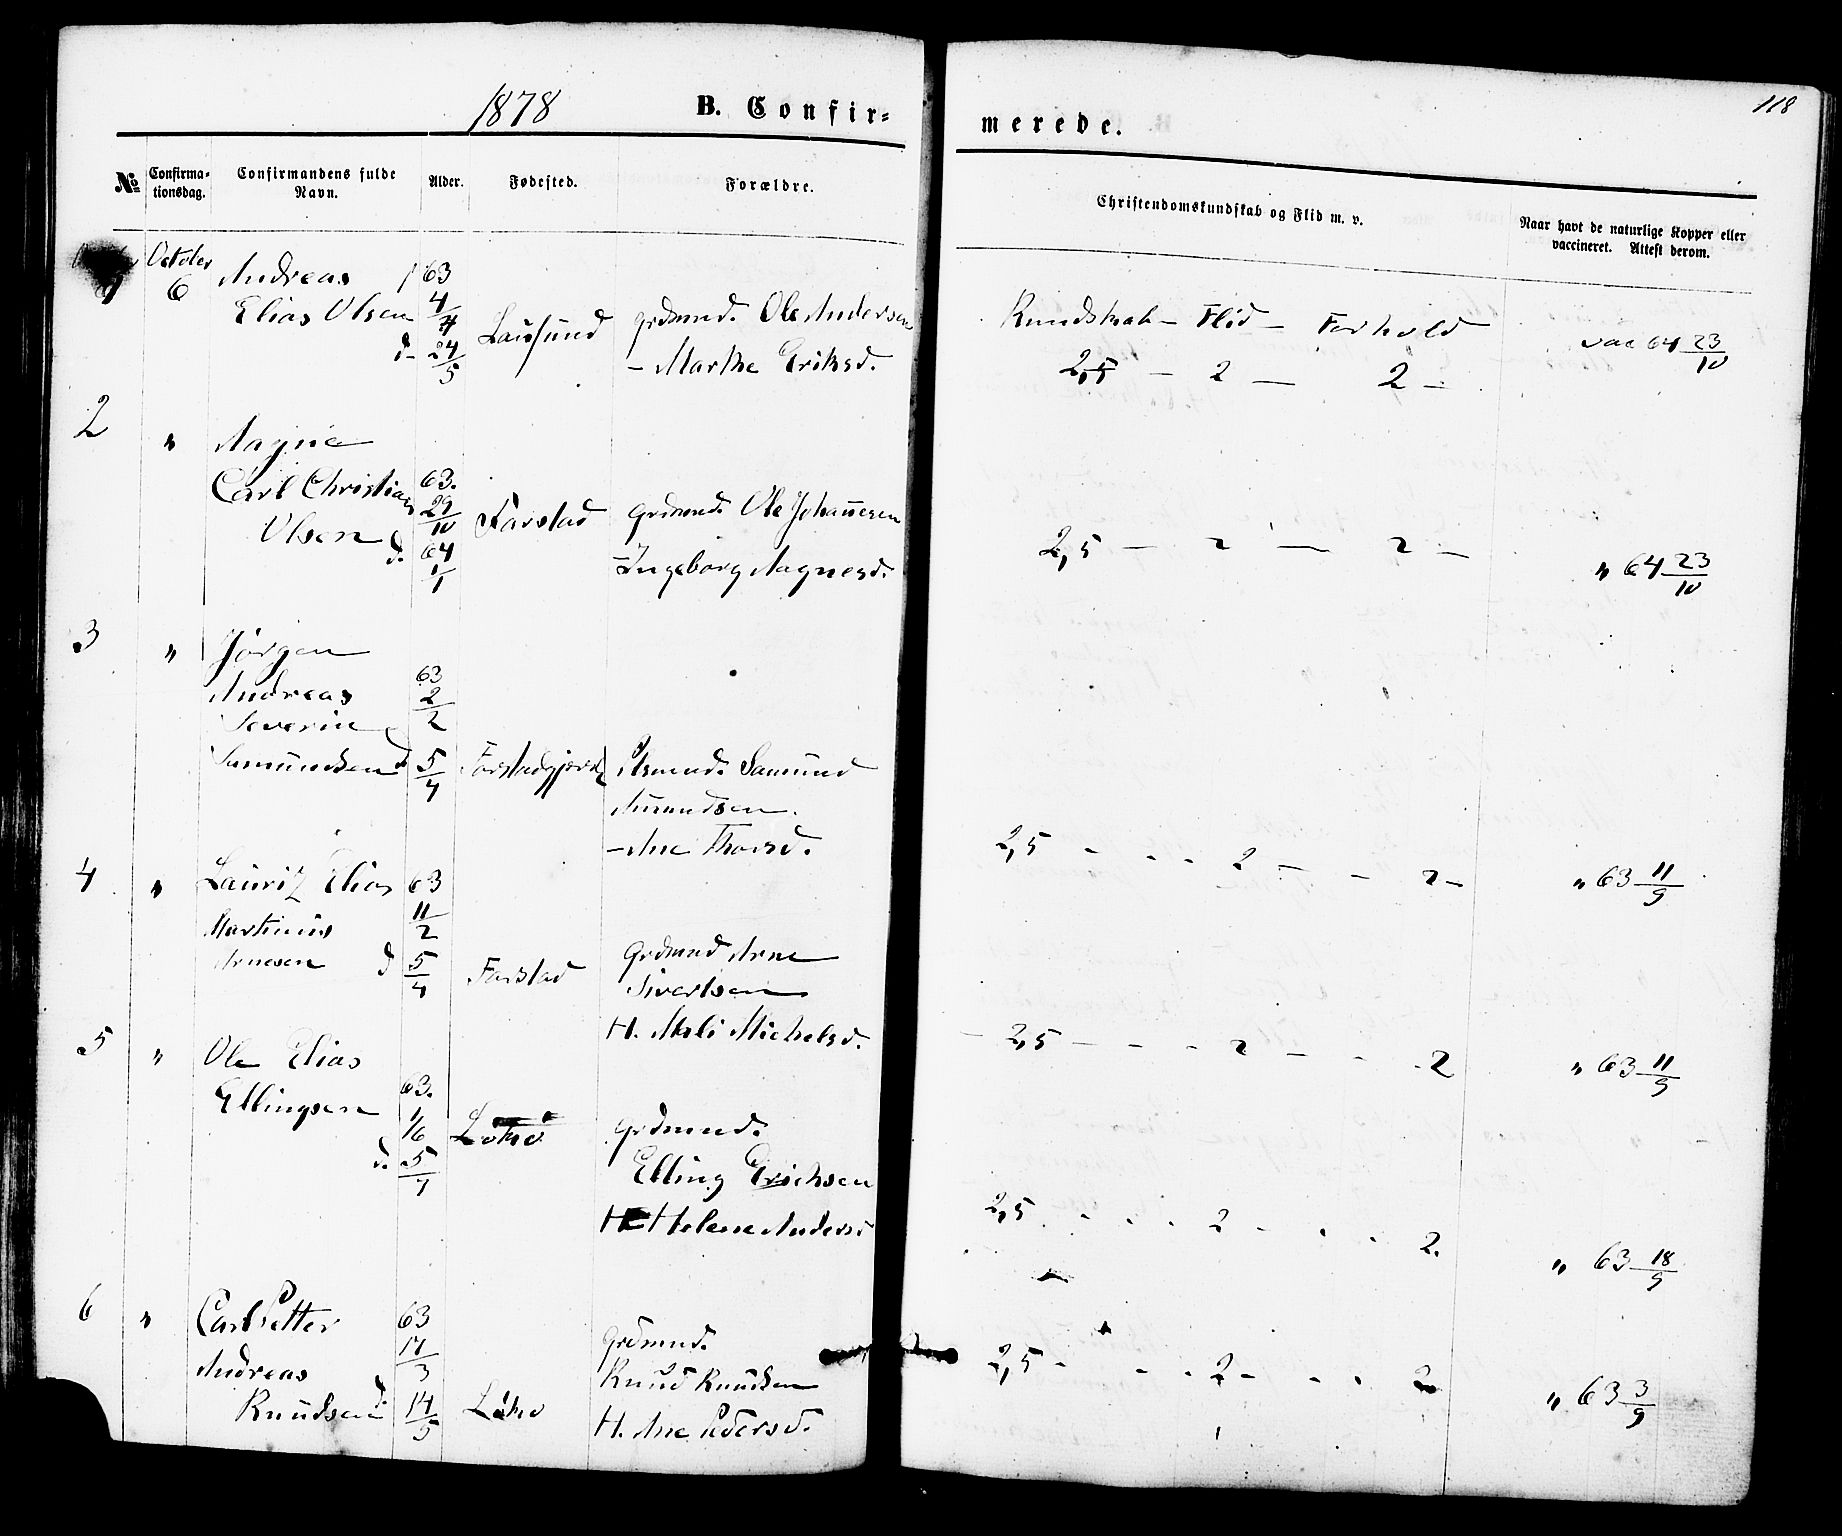 1878
B. Confir=
merede.
118
No
Confirma-
tionsdag.
Confirmandens fulde
Navn.
Alder.
Fødested.
Forældre.
Christendomskundskab og Flid m. v.
Naar havt de naturlige Kopper eller
vaccineret. Attest derom.
1
October
6
Andreas
Elias Olsen
63
4/4
d. 24/5
Lausund
grdmnd. Ole Andersen
- Marthe Eriksd.
Kundskab - Flid - Forhold
2,5 - 2 - 2 -
vac 64 23/10
2
"
Aagne
Carl Christian
Olsen
63.
29/10
d. 64
1/1
Farstad
grdmnd. Ole Johannesen
- Ingeborg Aagnesd.
2,5 - 2 - 2 -
" 64 23/10
3
"
Jørgen
Andreas
Severin
Samundsen
63
2/2
d. 5/4
Farstadgjerde
Plsmnd. Samund
Amundsen.
- Ane Thorsd.
2,5 - - - 2 - - 2 -
" 63 11/9
4
"
Lauritz Elias
Martinus
Arnesen
63
11/2
d 5/4
Farstad
grdmnd Arne
Sivertsen
H. Mali Michelsd.
- 2,5 - - - 2 - - - 2
" 63 11/9
5
"
Ole Elias
Ellingsen
63.
1/6
d. 5/7
grdmnd.
Elling Erichsen
H Helene Andersd
2,5 - - - 2 - - - 2.
" 63 18/9
6
"
Carl Petter
Andreas
Knudsen
63
17/3
d. 14/5
grdmnd.
Knud Knudsen
H. Ane Pedersd.
2,5 - - - 2 - - - 2
" 63 3/9